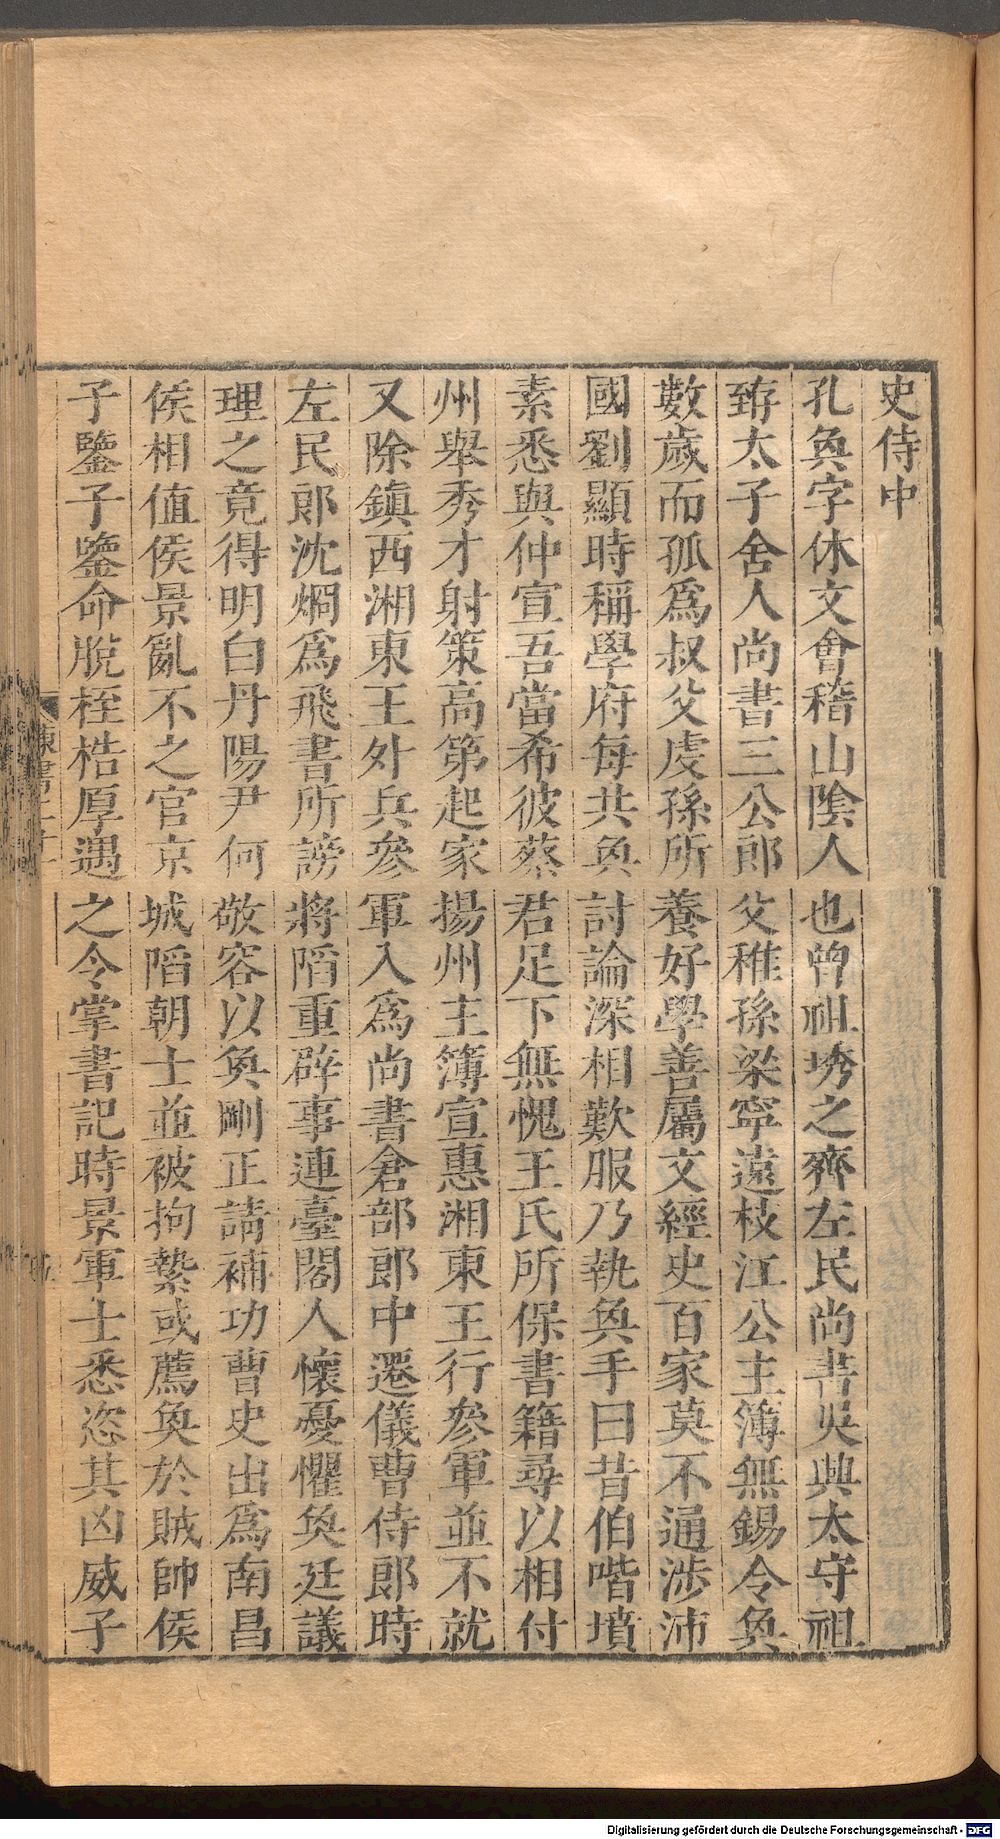 史侍中
孔奐字休文會稽山陰人也曾祖琇之齊左民尚書吳興太守祖
臶太子舍人尚書三公郎父稚孫梁寧遠枝江公主簿無錫令奐
數歲而孤爲叔父虔孫所養好學善屬文經史百家莫不通涉沛
國劉顯時稱學府每共奐討論深相歎服乃執奐手曰昔伯喈墳
素悉與仲宣吾當希彼蔡君足下無愧王氏所保書籍尋以相付
州舉秀才射策高第起家揚州主簿宣惠湘東王行參軍並不就
又除鎮西湘東王外兵參軍入爲尚書倉部郎中遷儀曹侍郎時
左民郎沈烱爲飛書所謗將陷重辟事連臺閣人懷憂懼奐廷議
理之竟得明白丹陽尹何敬容以奐剛正請補功曹史出爲南昌
侯相值侯景亂不之官京城陷朝士並被拘縶或薦奐於賊帥侯
子鑒子鑒命脫桎梏厚遇之令掌書記時景軍士悉恣其凶威子
Digitalisierung gefördert durch die Deutsche Forschungsgemeinschaft - DFG